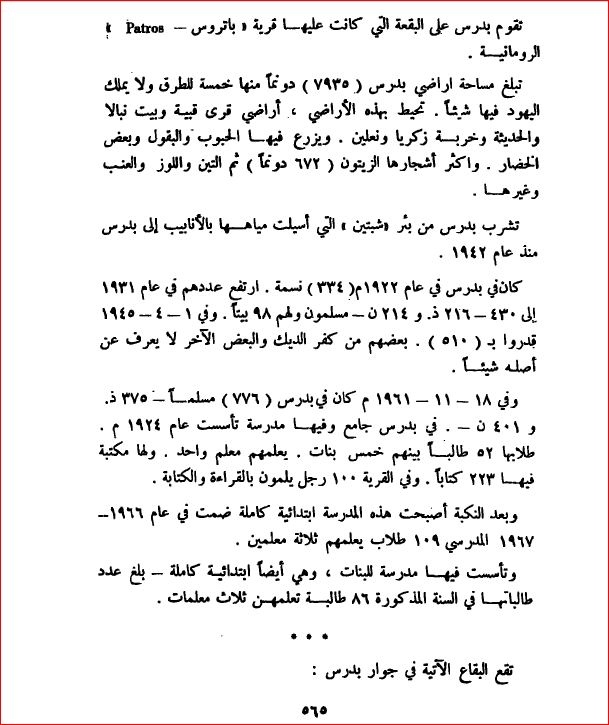 تقوم بدرس على البقعة التي كانت عليهـا قرية « باتروس – Patros »
الرومانيـة .
تبلغ مساحة اراضي بدرس ( ٧٩٣٥ ) دونماً منها خمسة للطرق ولا يملك
اليهود فيها شيئاً . تحيط بهذه الأراضي ، أراضي قرى قبية وبيت نبالا
والحديثة وخربـة زكريا ونعلين . ويزرع فيهـا الحبوب والبقول وبعض
الخضار . واكثر أشجارها الزيتون ( ٦٧٢ دونماً ) ثم التين واللوز والعنب
وغيرهـا .
تشرب بدرس من بئر «شبتين » التي أسيلت مياهـها بالأنابيب إلى بدرس
منذ عام ١٩٤٢ .
كان في بدرس في عام ١٩٢٢م ( ٣٣٤ ) نسمة . ارتفع عددهم في عام ١٩٣١
إلى ٤٣٠ – ٢١٦ ذ. و ٢١٤ ن – مسلمون ولهم ٩٨ بيتاً . وفي ١ – ٤ – ١٩٤٥
قدروا بـ ( ٥١٠ ) . بعضهم من كفر الديك والبعض الآخر لا يعرف عن
أصلـه شيئـاً .
وفي ١٨ – ١١ – ١٩٦١ م كان في بدرس ( ٧٧٦ ) مسلمـاً – ٣٧٥ ذ.
و ٤٠١ ن – . في بدرس جامع وفيهـا مدرسة تأسست عام ١٩٢٤ م .
طلابها ٥٢ طالبـاً بينهم خمس بنات . يعلمهم معلم واحد . ولها مكتبة
فيهـا ٢٢٣ كتاباً . وفي القرية ١٠٠ رجل يلمون بالقراءة والكتابة .
وبعد النكبة أصبحت هذه المدرسة ابتدائية كاملة ضمت في عام ١٩٦٦–
١٩٦٧ المدرسي ١٠٩ طلاب يعلمهم ثلاثة معلمين .
وتأسست فيهـا مدرسة للبنات ، وهي أيضاً ابتدائيـة كاملة – بلغ عدد
طالباتهـا في السنة المذكورة ٨٦ طالبـة تعلمهـن ثلاث معلمات .
* * *
تقع البقاع الآتية في جوار بدرس :
٥٦٥